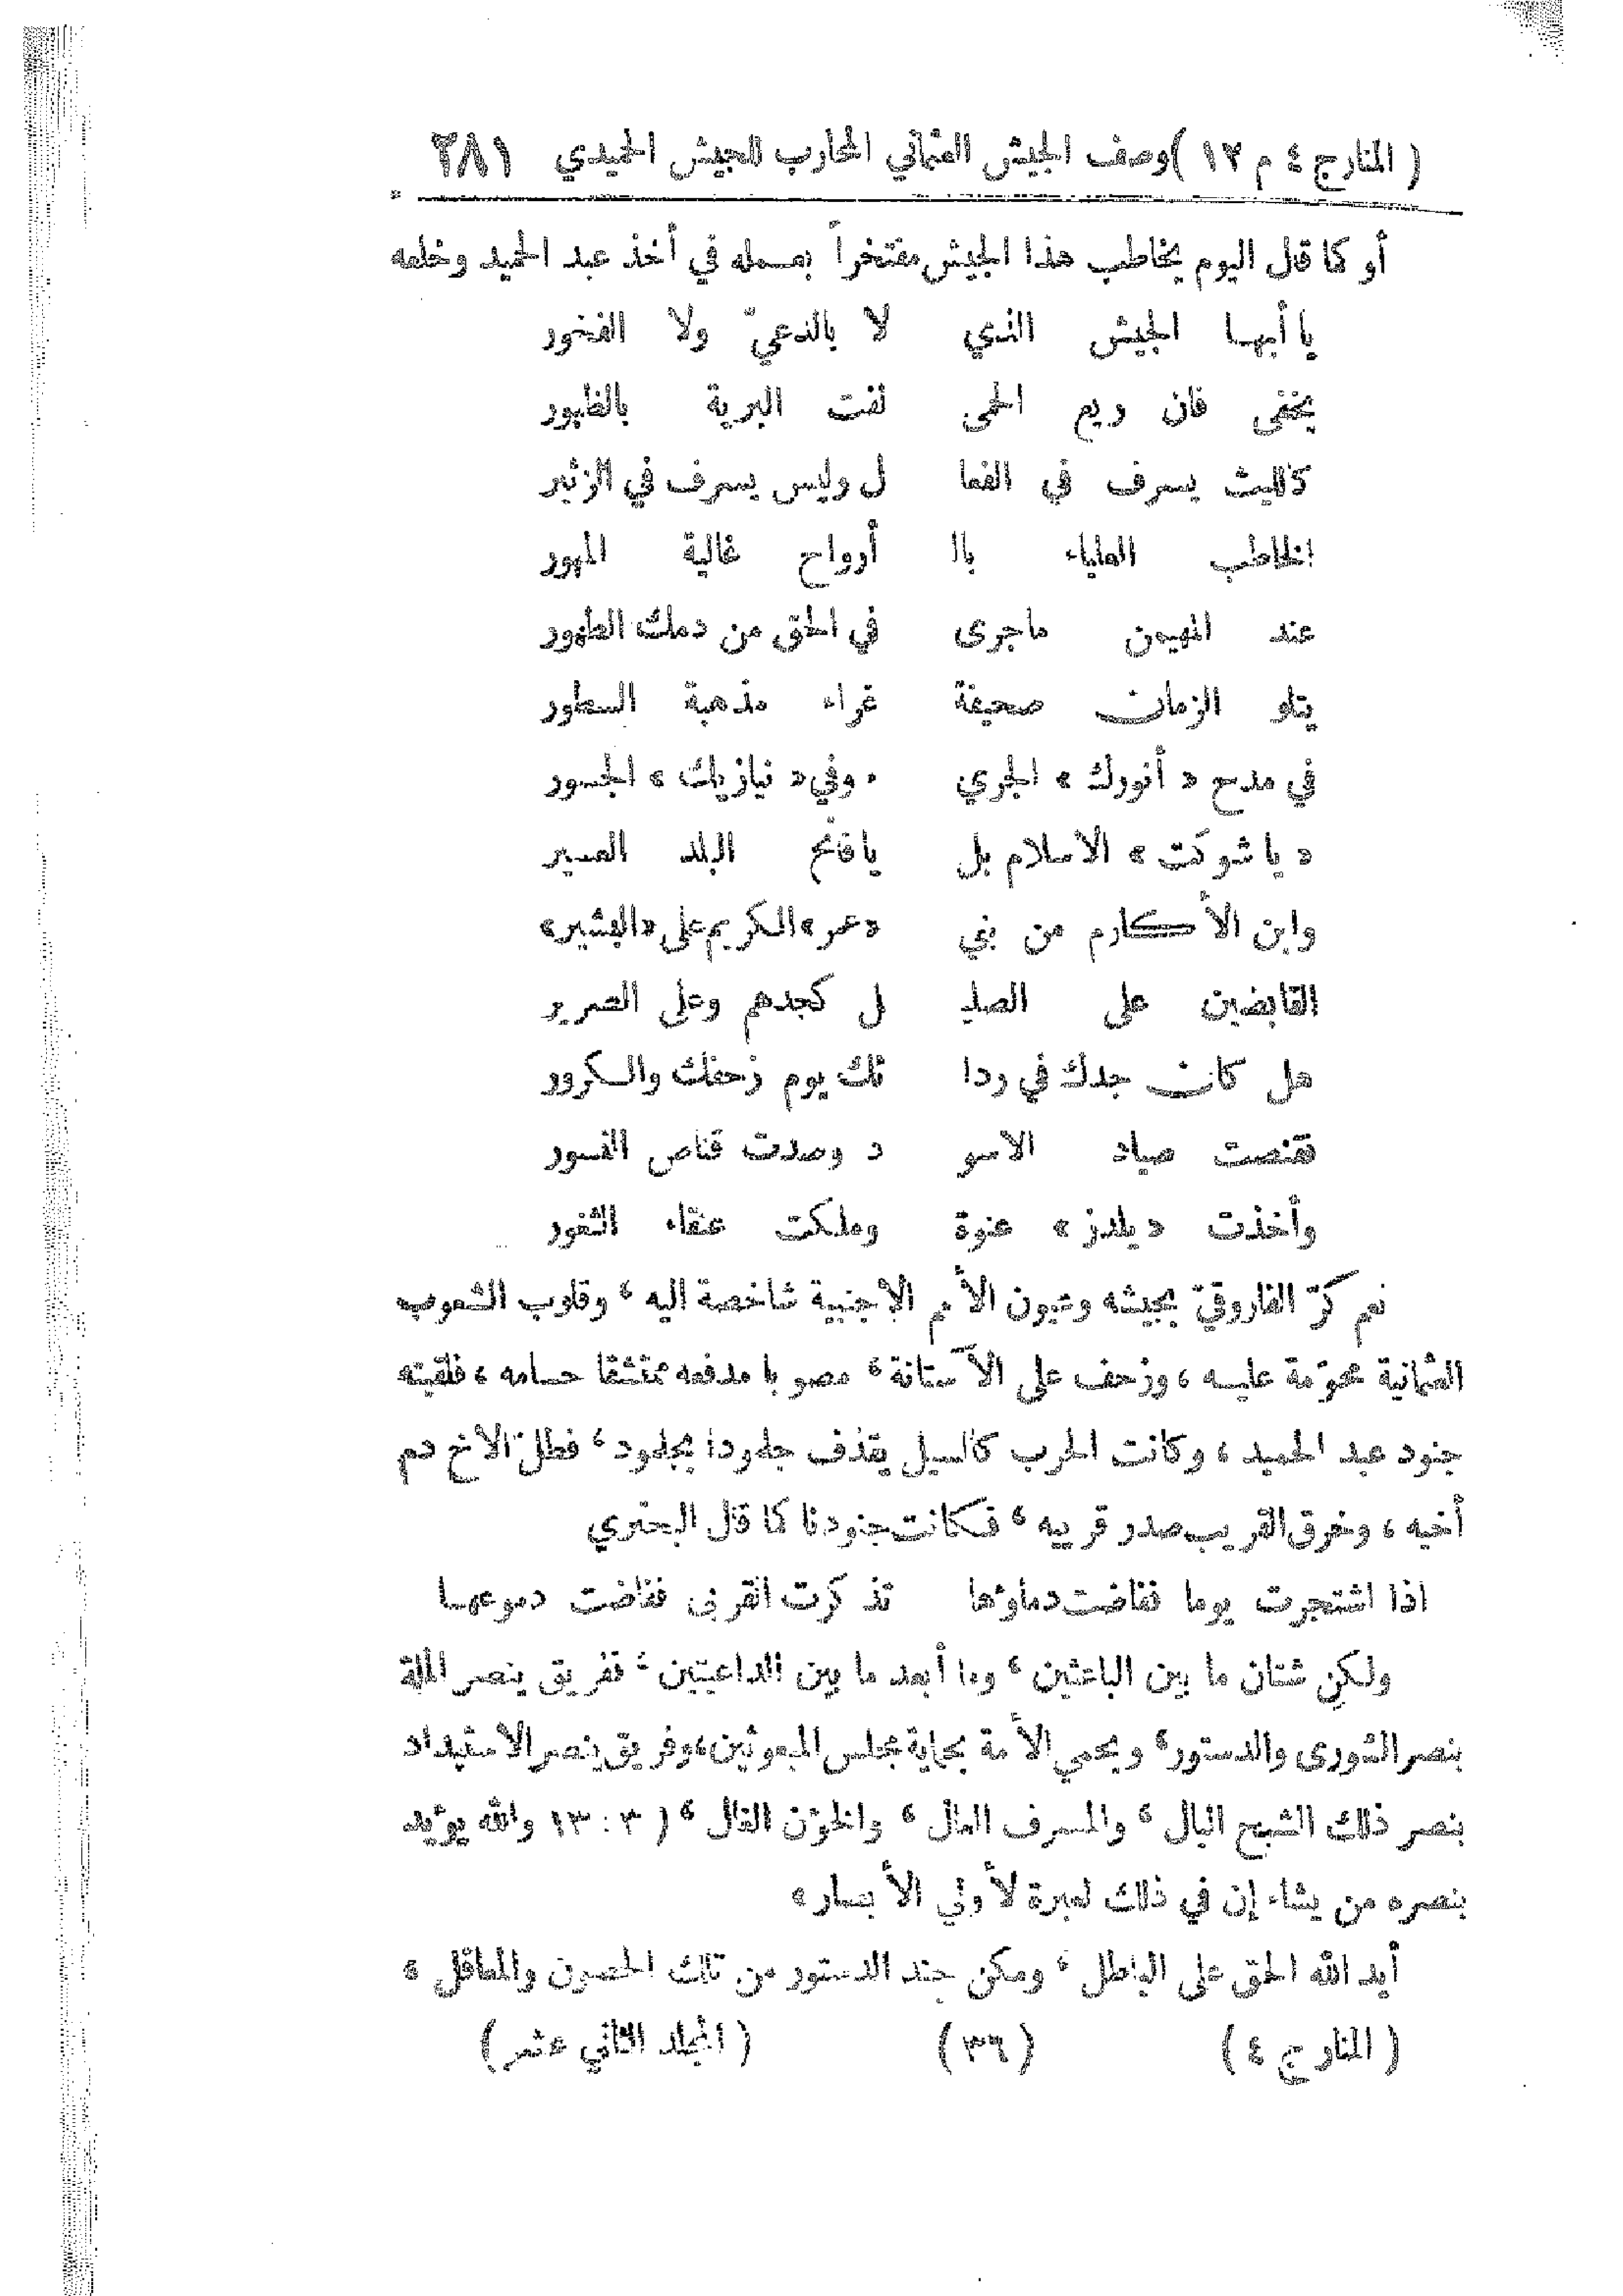 ( المنار ج ٤ م ١٢ ) وصف الجيش العثماني المحارب للجيش الحميدي ٢٨١
أو كما قال اليوم يخاطب هذا الجيش مفتخراً بعمله في أخذ عبد الحميد وخلعه
يا أيها الجيش الذي لا بالدعيّ ولا الفخور
يخفى فان ريع الحمى لفت البرية بالظهور
كالليث يسرف في الفعا ل وليس يسرف في الزئير
الخاطب العلياء بالـ أرواح غالية المهور
عند المهيمن ماجرى في الحق من دمك الطهور
يتلو الزمان صحيفة غراء مذهبة السطور
في مدح « أنورك » الجري ء وفي « نيازيك » الجسور
« يا شوكت » الاسلام بل يا فاتح البلد العسير
وابن الأكارم من بني « عمر » الكريم على « البشير »
القابضين على الصليـ ل كجدهم وعلى الصرير
هل كان جدك في ردا ئك يوم زحفك والكرور
فقنصت صياد الاسو د وصدت قناص النسور
وأخذت « يلدز » عنوة وملكت عنقاء الثغور
نعم كرّ الفاروقيّ بجيشه وعيون الأمم الاجنبية شاخصة اليه ، وقلوب الشعوب
العثمانية محوّمة عليه ، وزحف على الآستانة ، مصوبا مدفعه ممتشقا حسامه ، فلقيته
جنود عبد الحميد ، وكانت الحرب كالسيل يقذف جلمودا بجلمود ، فطلّ الاخ دم
أخيه ، وخرق القريب صدر قريبه ، فكانت جنودنا كما قال البحتري
اذا اشتجرت يوما ففاضت دماؤها تذكرت القربى ففاضت دموعها
ولكن شتان ما بين الباعثين ، وما أبعد ما بين الداعيتين ، ففريق ينصر الملة
بنصر الشورى والدستور ، ويحمي الأمة بحماية مجلس المبعوثين ، وفريق ينصر الاستبداد
بنصر ذلك الشبح البال ، والمسرف المال ، والخؤن القال ، ( ٣ : ١٣ والله يؤيد
بنصره من يشاء إن في ذلك لعبرة لأولي الأبصار »
أيد الله الحق على الباطل ، ومكن جند الدستور من تلك الحصون والمعاقل ،
( المنار ج ٤ ) ( ٣٦ ) ( المجلد الثاني عشر )